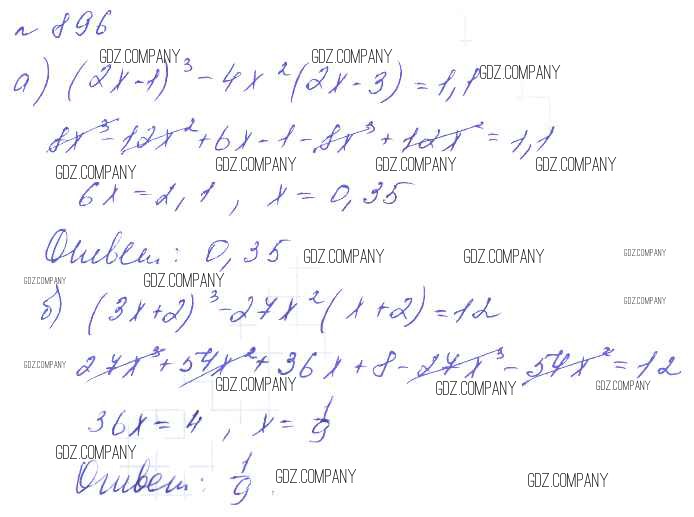 № 896
GDZ.COMPANY GDZ.COMPANY
а) (2x-1)³ - 4x² (2x-3) = 1,1 GDZ.COMPANY
8x³ - 12x² + 6x - 1 - 8x³ + 12x² = 1,1
GDZ.COMPANY GDZ.COMPANY GDZ.COMPANY GDZ.COMPANY
6x = 2,1 , x = 0,35
Ответ: 0,35 GDZ.COMPANY GDZ.COMPANY GDZ.COMPANY
GDZ.COMPANY GDZ.COMPANY
б) (3x+2)³ - 27x² (x+2) = 12 GDZ.COMPANY
GDZ.COMPANY 27x³ + 54x² + 36x + 8 - 27x³ - 54x² = 12
GDZ.COMPANY GDZ.COMPANY GDZ.COMPANY
36x = 4 , x = 1/9
GDZ.COMPANY
Ответ: 1/9 GDZ.COMPANY GDZ.COMPANY